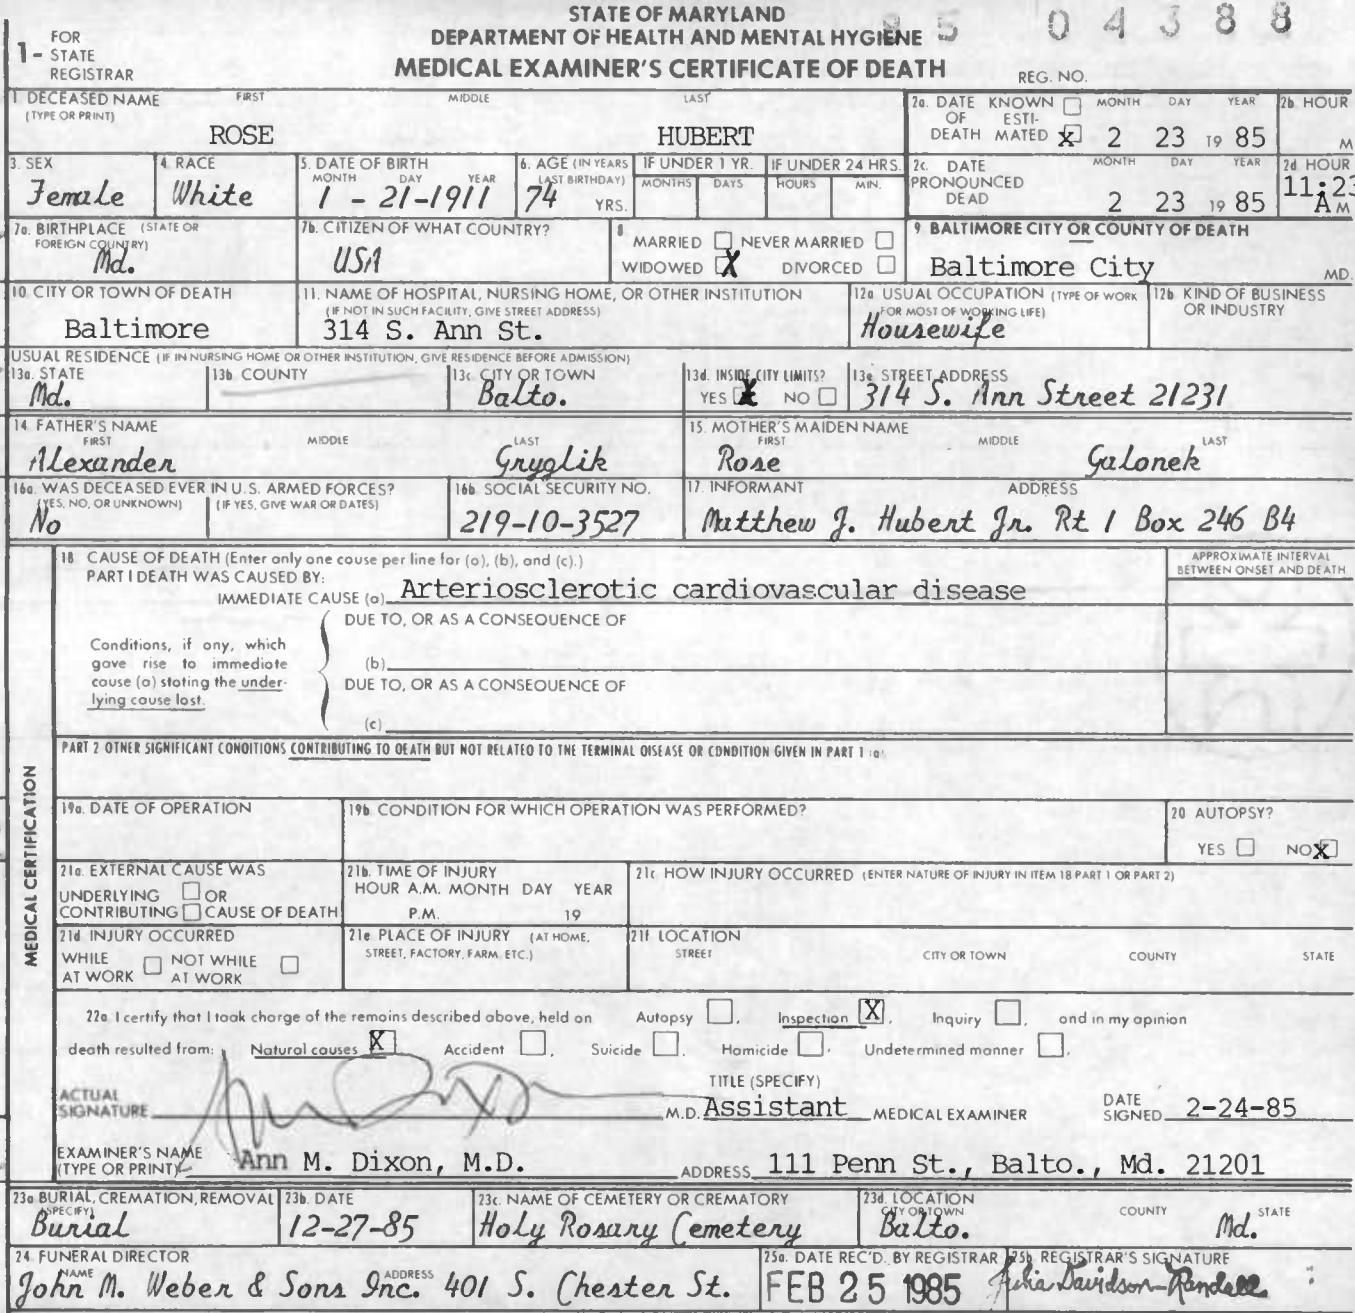 STATE OF MARYLAND
DEPARTMENT OF HEALTH AND MENTAL HYGIENE
MEDICAL EXAMINER'S CERTIFICATE OF DEATH
1 - FOR STATE REGISTRAR
85 04388
REG. NO.
1. DECEASED NAME (TYPE OR PRINT) FIRST MIDDLE LAST
ROSE HUBERT
2a. DATE OF DEATH KNOWN ESTIMATED X MONTH DAY YEAR 2 23 19 85
2b. HOUR M
3. SEX Female
4. RACE White
5. DATE OF BIRTH MONTH DAY YEAR 1 - 21-1911
6. AGE (IN YEARS LAST BIRTHDAY) 74 YRS.
IF UNDER 1 YR. MONTHS DAYS
IF UNDER 24 HRS. HOURS MIN.
2c. DATE PRONOUNCED DEAD MONTH DAY YEAR 2 23 19 85
2d HOUR 11:23 A M
7a. BIRTHPLACE (STATE OR FOREIGN COUNTRY) Md.
7b. CITIZEN OF WHAT COUNTRY? USA
8 MARRIED NEVER MARRIED
WIDOWED X DIVORCED
9 BALTIMORE CITY OR COUNTY OF DEATH
Baltimore City MD.
10. CITY OR TOWN OF DEATH
Baltimore
11. NAME OF HOSPITAL, NURSING HOME, OR OTHER INSTITUTION
(IF NOT IN SUCH FACILITY, GIVE STREET ADDRESS)
314 S. Ann St.
12a USUAL OCCUPATION (TYPE OF WORK FOR MOST OF WORKING LIFE)
Housewife
12b KIND OF BUSINESS OR INDUSTRY
USUAL RESIDENCE (IF IN NURSING HOME OR OTHER INSTITUTION, GIVE RESIDENCE BEFORE ADMISSION)
13a. STATE Md.
13b. COUNTY
13c. CITY OR TOWN Balto.
13d. INSIDE CITY LIMITS? YES X NO
13e STREET ADDRESS 314 S. Ann Street 21231
14. FATHER'S NAME FIRST MIDDLE LAST
Alexander Gryglik
15. MOTHER'S MAIDEN NAME FIRST MIDDLE LAST
Rose Galonek
16a. WAS DECEASED EVER IN U.S. ARMED FORCES?
(YES, NO, OR UNKNOWN) (IF YES, GIVE WAR OR DATES)
No
16b. SOCIAL SECURITY NO.
219-10-3527
17. INFORMANT ADDRESS
Matthew J. Hubert Jr. Rt 1 Box 246 B4
MEDICAL CERTIFICATION
18 CAUSE OF DEATH (Enter only one cause per line for (a), (b), and (c).)
PART I DEATH WAS CAUSED BY:
IMMEDIATE CAUSE (a) Arteriosclerotic cardiovascular disease
APPROXIMATE INTERVAL BETWEEN ONSET AND DEATH
Conditions, if any, which gave rise to immediate cause (a) stating the underlying cause last.
DUE TO, OR AS A CONSEQUENCE OF
(b)
DUE TO, OR AS A CONSEQUENCE OF
(c)
PART 2 OTHER SIGNIFICANT CONDITIONS CONTRIBUTING TO DEATH BUT NOT RELATED TO THE TERMINAL DISEASE OR CONDITION GIVEN IN PART 1 (a)
19a. DATE OF OPERATION
19b. CONDITION FOR WHICH OPERATION WAS PERFORMED?
20 AUTOPSY?
YES NO X
21a. EXTERNAL CAUSE WAS
UNDERLYING OR
CONTRIBUTING CAUSE OF DEATH
21b. TIME OF INJURY
HOUR A.M. MONTH DAY YEAR
P.M. 19
21c HOW INJURY OCCURRED (ENTER NATURE OF INJURY IN ITEM 18 PART 1 OR PART 2)
21d INJURY OCCURRED
WHILE AT WORK NOT WHILE AT WORK
21e PLACE OF INJURY (AT HOME, STREET, FACTORY, FARM, ETC.)
21f LOCATION
STREET CITY OR TOWN COUNTY STATE
22a I certify that I took charge of the remains described above, held on Autopsy , Inspection X , Inquiry , and in my opinion
death resulted from: Natural causes X Accident , Suicide , Homicide , Undetermined manner .
ACTUAL SIGNATURE M.D.
TITLE (SPECIFY)
Assistant MEDICAL EXAMINER
DATE SIGNED 2-24-85
EXAMINER'S NAME (TYPE OR PRINT) Ann M. Dixon, M.D.
ADDRESS 111 Penn St., Balto., Md. 21201
23a BURIAL, CREMATION, REMOVAL (SPECIFY) Burial
23b. DATE 12-27-85
23c. NAME OF CEMETERY OR CREMATORY Holy Rosary Cemetery
23d. LOCATION CITY OR TOWN COUNTY STATE
Balto. Md.
24 FUNERAL DIRECTOR
NAME ADDRESS
John M. Weber & Sons Inc. 401 S. Chester St.
25a. DATE REC'D. BY REGISTRAR
FEB 25 1985
25b. REGISTRAR'S SIGNATURE
Julia Davidson-Randall